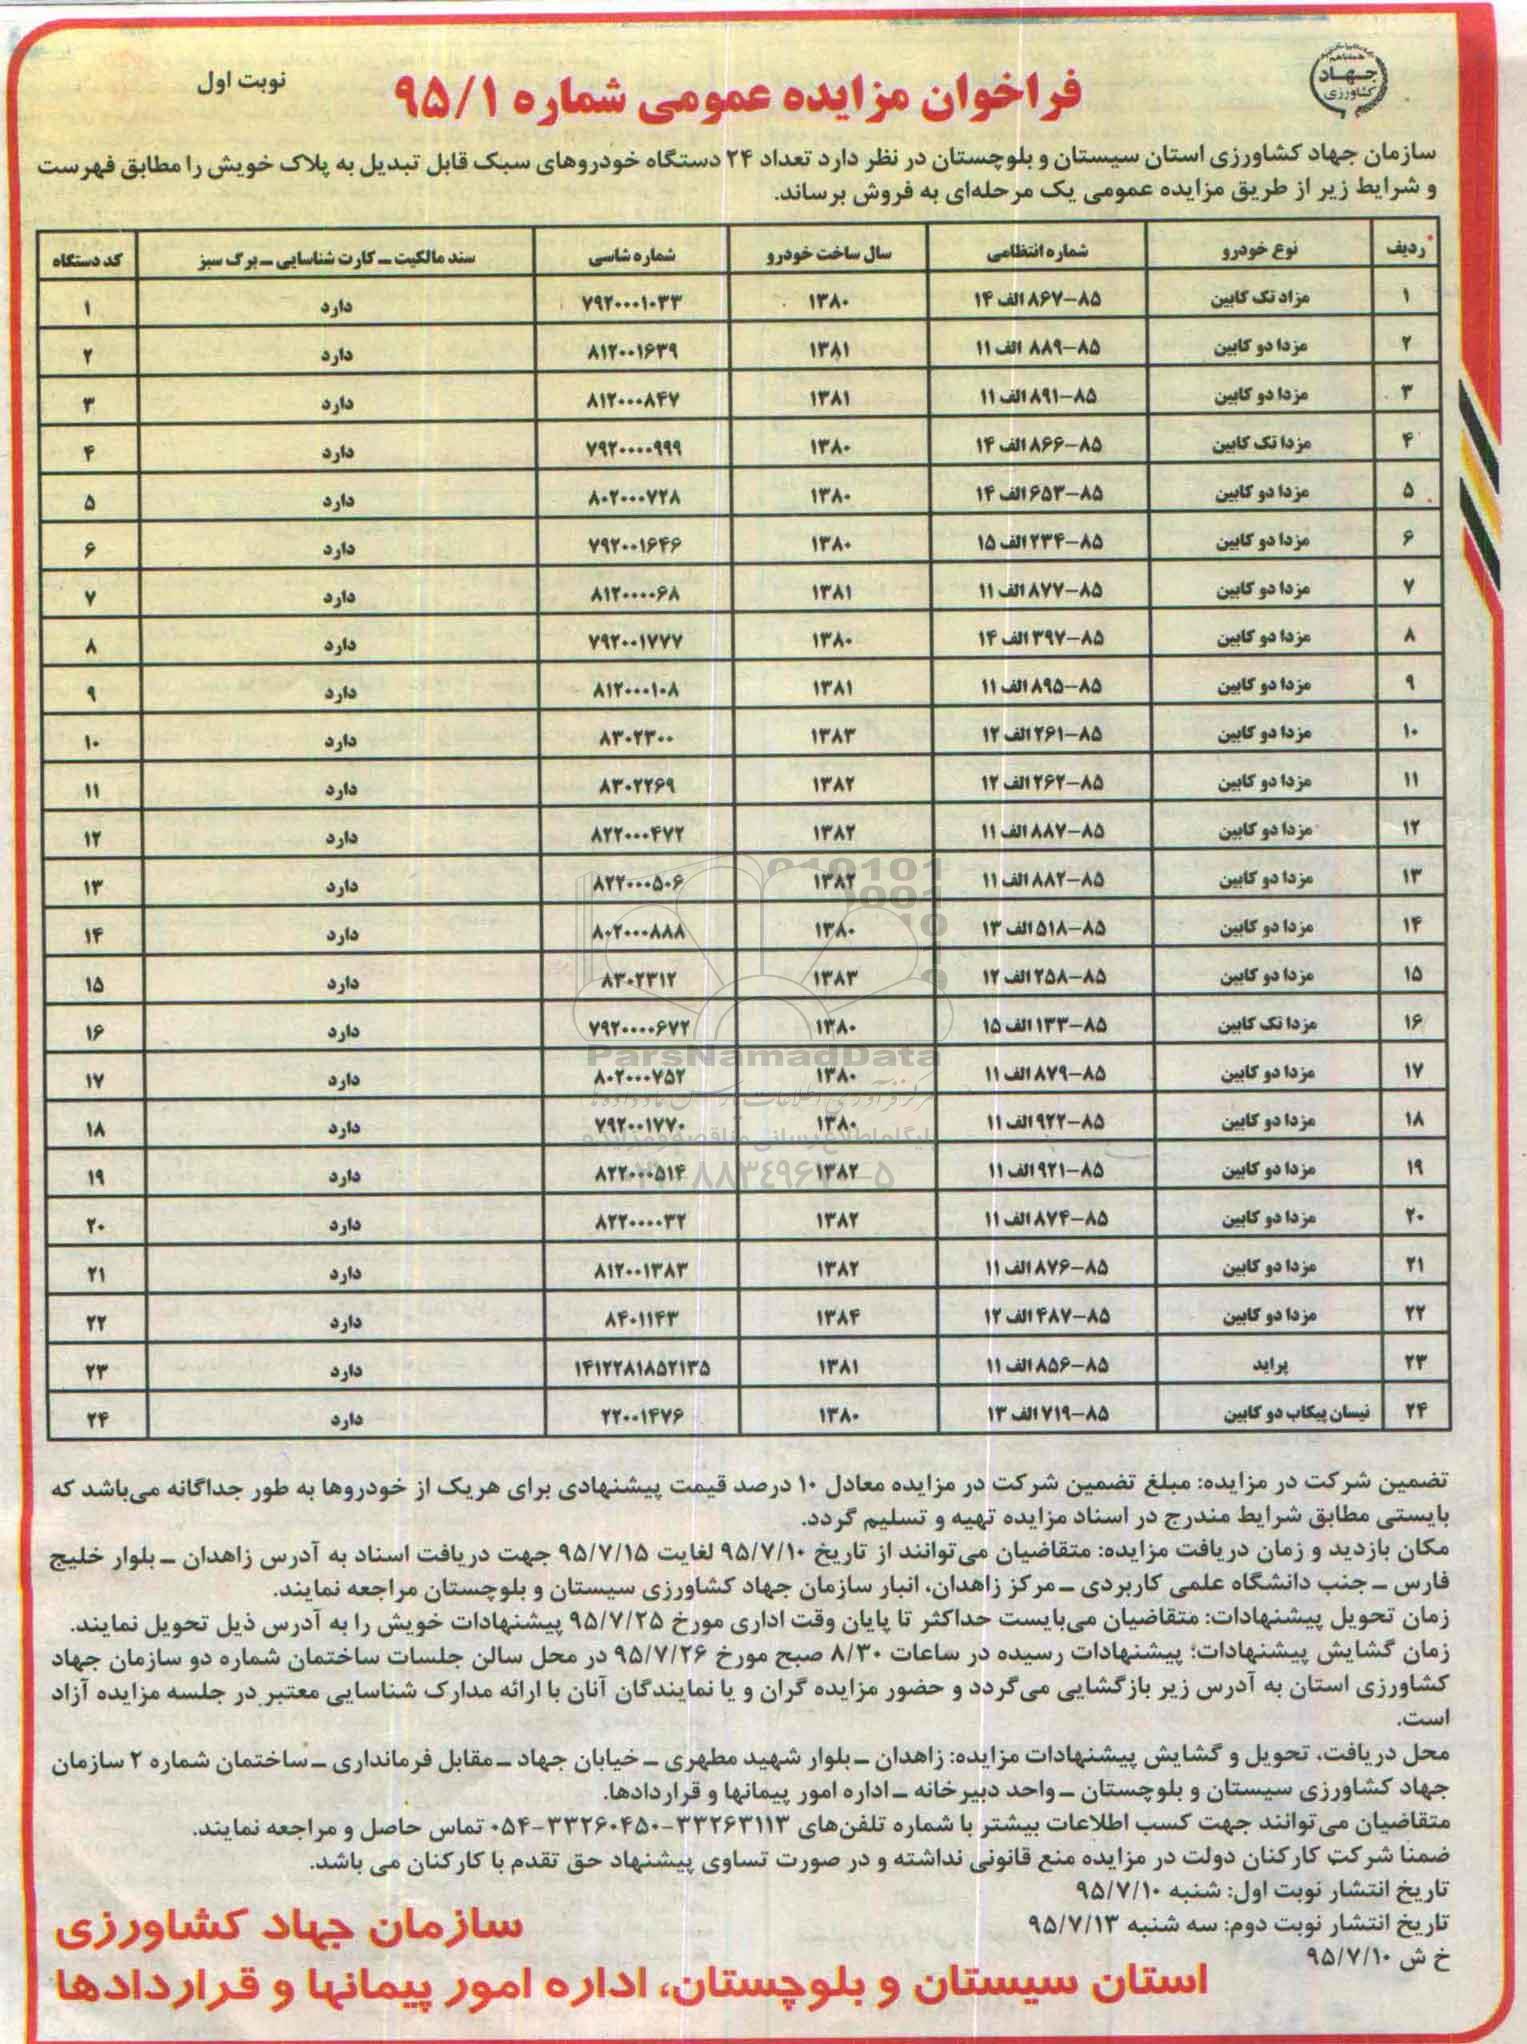 جهاد
کشاورزی
فراخوان مزایده عمومی شماره ۹۵/۱
نوبت اول
سازمان جهاد کشاورزی استان سیستان و بلوچستان در نظر دارد تعداد ۲۴ دستگاه خودروهای سبک قابل تبدیل به پلاک خویش را مطابق فهرست
و شرایط زیر از طریق مزایده عمومی یک مرحله‌ای به فروش برساند.
ردیف نوع خودرو شماره انتظامی سال ساخت خودرو شماره شاسی سند مالکیت ـ کارت شناسایی ـ برگ سبز کد دستگاه
۱ مزاد تک کابین ۸۵–۸۶۷ الف ۱۴ ۱۳۸۰ ۷۹۲۰۰۰۱۰۳۳ دارد ۱
۲ مزدا دو کابین ۸۵–۸۸۹ الف ۱۱ ۱۳۸۱ ۸۱۲۰۰۱۶۳۹ دارد ۲
۳ مزدا دو کابین ۸۵–۸۹۱ الف ۱۱ ۱۳۸۱ ۸۱۲۰۰۰۸۴۷ دارد ۳
۴ مزدا تک کابین ۸۵–۸۶۶ الف ۱۴ ۱۳۸۰ ۷۹۲۰۰۰۰۹۹۹ دارد ۴
۵ مزدا دو کابین ۸۵–۶۵۳ الف ۱۴ ۱۳۸۰ ۸۰۲۰۰۰۷۲۸ دارد ۵
۶ مزدا دو کابین ۸۵–۲۳۴ الف ۱۵ ۱۳۸۰ ۷۹۲۰۰۱۶۴۶ دارد ۶
۷ مزدا دو کابین ۸۵–۸۷۷ الف ۱۱ ۱۳۸۱ ۸۱۲۰۰۰۰۶۸ دارد ۷
۸ مزدا دو کابین ۸۵–۳۹۷ الف ۱۴ ۱۳۸۰ ۷۹۲۰۰۱۷۷۷ دارد ۸
۹ مزدا دو کابین ۸۵–۸۹۵ الف ۱۱ ۱۳۸۱ ۸۱۲۰۰۰۱۰۸ دارد ۹
۱۰ مزدا دو کابین ۸۵–۲۶۱ الف ۱۲ ۱۳۸۳ ۸۳۰۲۳۰۰ دارد ۱۰
۱۱ مزدا دو کابین ۸۵–۲۶۲ الف ۱۲ ۱۳۸۲ ۸۳۰۲۲۶۹ دارد ۱۱
۱۲ مزدا دو کابین ۸۵–۸۸۷ الف ۱۱ ۱۳۸۲ ۸۲۲۰۰۰۴۷۲ دارد ۱۲
۱۳ مزدا دو کابین ۸۵–۸۸۲ الف ۱۱ ۱۳۸۲ ۸۲۲۰۰۰۵۰۶ دارد ۱۳
۱۴ مزدا دو کابین ۸۵–۵۱۸ الف ۱۳ ۱۳۸۰ ۸۰۲۰۰۰۸۸۸ دارد ۱۴
۱۵ مزدا دو کابین ۸۵–۲۵۸ الف ۱۲ ۱۳۸۳ ۸۳۰۲۳۱۲ دارد ۱۵
۱۶ مزدا تک کابین ۸۵–۱۳۳ الف ۱۵ ۱۳۸۰ ۷۹۲۰۰۰۰۶۷۲ دارد ۱۶
۱۷ مزدا دو کابین ۸۵–۸۷۹ الف ۱۱ ۱۳۸۰ ۸۰۲۰۰۰۷۵۲ دارد ۱۷
۱۸ مزدا دو کابین ۸۵–۹۲۲ الف ۱۱ ۱۳۸۰ ۷۹۲۰۰۱۷۷۰ دارد ۱۸
۱۹ مزدا دو کابین ۸۵–۹۲۱ الف ۱۱ ۱۳۸۲ ۸۲۲۰۰۰۵۱۴ دارد ۱۹
۲۰ مزدا دو کابین ۸۵–۸۷۴ الف ۱۱ ۱۳۸۲ ۸۲۲۰۰۰۰۳۲ دارد ۲۰
۲۱ مزدا دو کابین ۸۵–۸۷۶ الف ۱۱ ۱۳۸۲ ۸۱۲۰۰۱۳۸۳ دارد ۲۱
۲۲ مزدا دو کابین ۸۵–۴۸۷ الف ۱۲ ۱۳۸۴ ۸۴۰۱۱۴۳ دارد ۲۲
۲۳ پراید ۸۵–۸۵۶ الف ۱۱ ۱۳۸۱ ۱۴۱۲۲۸۱۸۵۲۱۳۵ دارد ۲۳
۲۴ نیسان پیکاب دو کابین ۸۵–۷۱۹ الف ۱۳ ۱۳۸۰ ۲۲۰۰۱۴۷۶ دارد ۲۴
ParsNamadData
تضمین شرکت در مزایده: مبلغ تضمین شرکت در مزایده معادل ۱۰ درصد قیمت پیشنهادی برای هریک از خودروها به طور جداگانه می‌باشد که
بایستی مطابق شرایط مندرج در اسناد مزایده تهیه و تسلیم گردد.
مکان بازدید و زمان دریافت مزایده: متقاضیان می‌توانند از تاریخ ۹۵/۷/۱۰ لغایت ۹۵/۷/۱۵ جهت دریافت اسناد به آدرس زاهدان ـ بلوار خلیج
فارس ـ جنب دانشگاه علمی کاربردی ـ مرکز زاهدان، انبار سازمان جهاد کشاورزی سیستان و بلوچستان مراجعه نمایند.
زمان تحویل پیشنهادات: متقاضیان می‌بایست حداکثر تا پایان وقت اداری مورخ ۹۵/۷/۲۵ پیشنهادات خویش را به آدرس ذیل تحویل نمایند.
زمان گشایش پیشنهادات؛ پیشنهادات رسیده در ساعات ۸/۳۰ صبح مورخ ۹۵/۷/۲۶ در محل سالن جلسات ساختمان شماره دو سازمان جهاد
کشاورزی استان به آدرس زیر بازگشایی می‌گردد و حضور مزایده گران و یا نمایندگان آنان با ارائه مدارک شناسایی معتبر در جلسه مزایده آزاد
است.
محل دریافت، تحویل و گشایش پیشنهادات مزایده: زاهدان ـ بلوار شهید مطهری ـ خیابان جهاد ـ مقابل فرمانداری ـ ساختمان شماره ۲ سازمان
جهاد کشاورزی سیستان و بلوچستان ـ واحد دبیرخانه ـ اداره امور پیمانها و قراردادها.
متقاضیان می‌توانند جهت کسب اطلاعات بیشتر با شماره تلفن‌های ۳۳۲۶۳۱۱۳-۳۳۲۶۰۴۵۰-۰۵۴ تماس حاصل و مراجعه نمایند.
ضمنا شرکت کارکنان دولت در مزایده منع قانونی نداشته و در صورت تساوی پیشنهاد حق تقدم با کارکنان می باشد.
تاریخ انتشار نوبت اول: شنبه ۹۵/۷/۱۰
تاریخ انتشار نوبت دوم: سه شنبه ۹۵/۷/۱۳
خ ش ۹۵/۷/۱۰
سازمان جهاد کشاورزی
استان سیستان و بلوچستان، اداره امور پیمانها و قراردادها